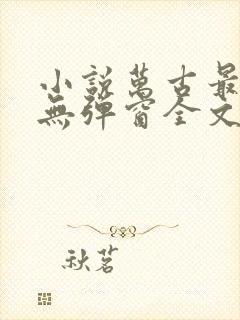 小說萬古最
無彈窗全文
秋茗